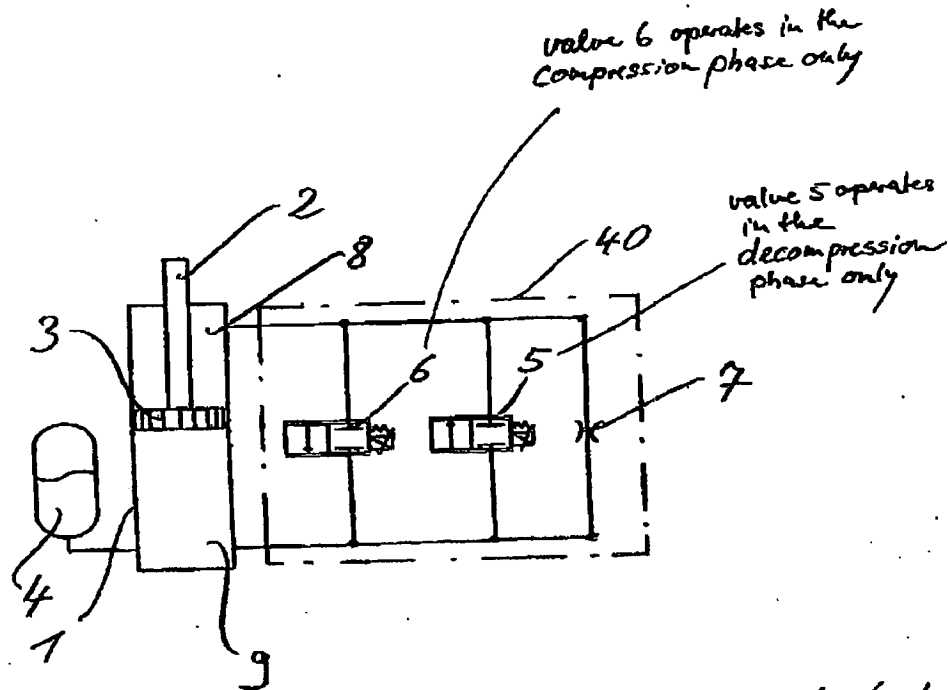 value 6 operates in the
compression phase only
value 5 operates
in the
decompression
phase only
2
40
8
3
6
5
7
4
1
9